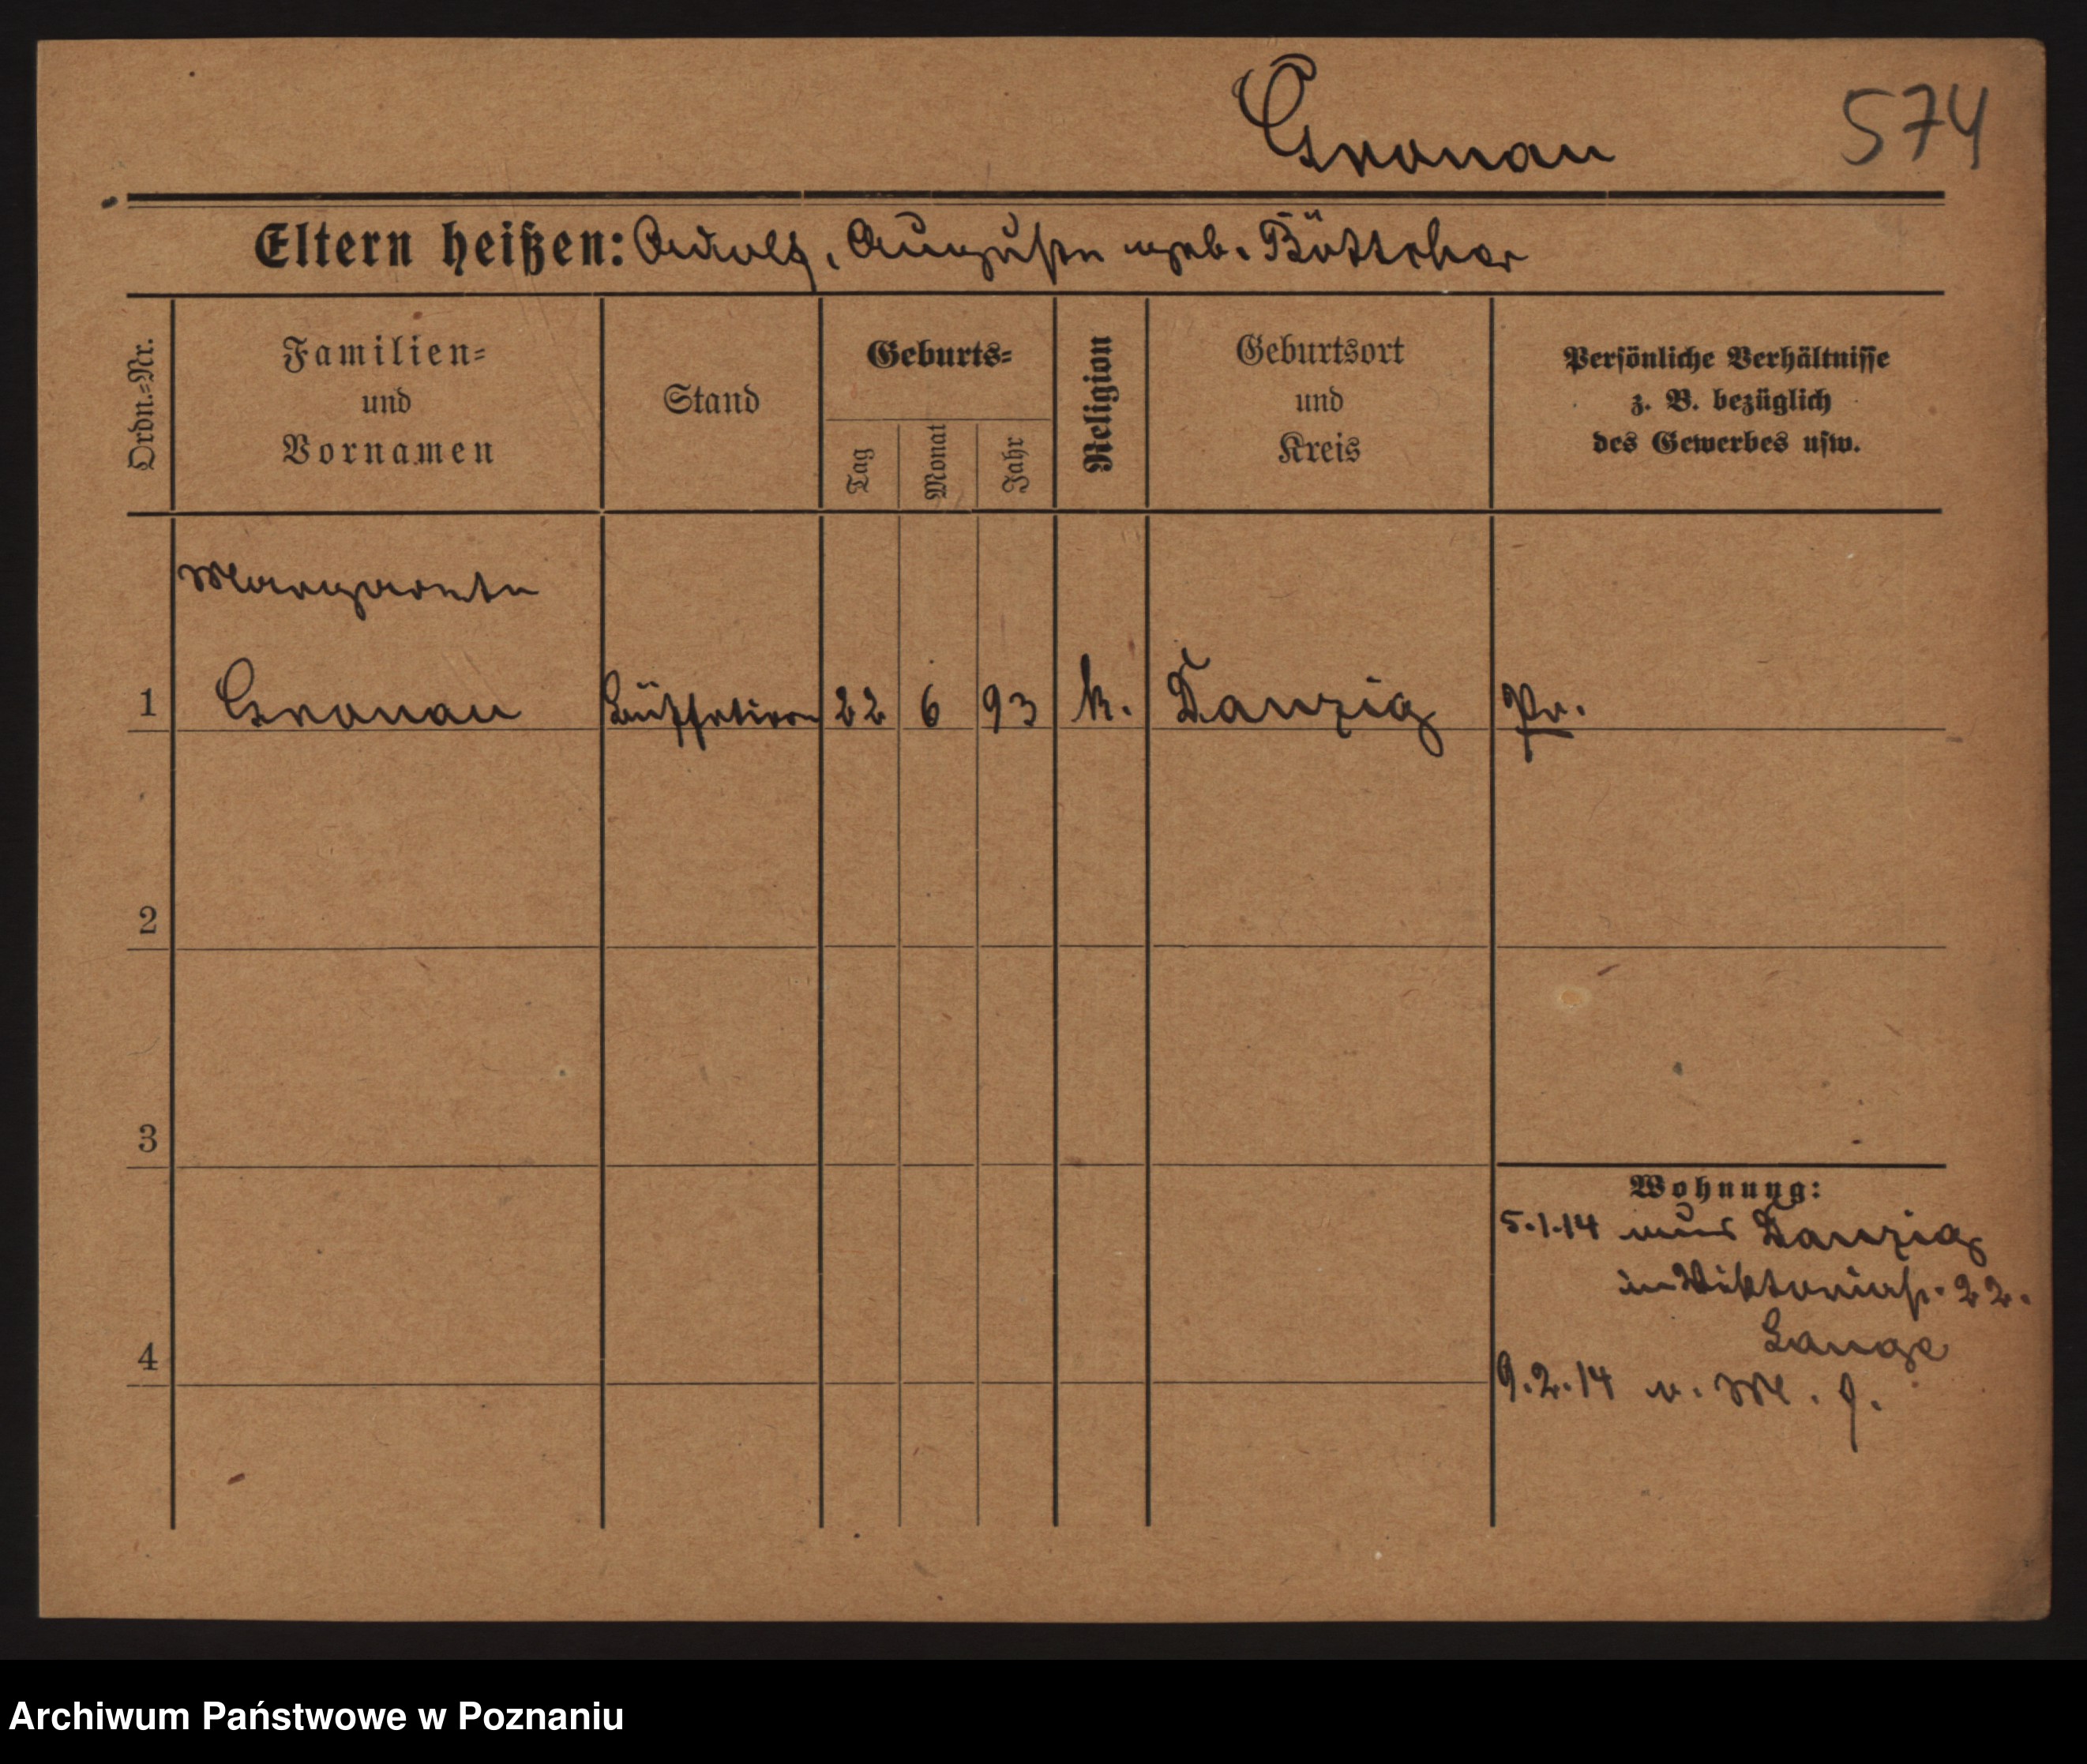 Gronau 574
Eltern heißen: Adolf, Auguste geb. Böttcher
Ordn.-Nr.
Familien-
und
Vornamen
Stand
Geburts-
Tag
Monat
Jahr
Religion
Geburtsort
und
Kreis
Persönliche Verhältnisse
z. B. bezüglich
des Gewerbes usw.
Margarete
1 Gronau 22 6 93 k. Danzig Pr.
2
3
Wohnung:
5.1.14 aus Danzig
in Viktoriastr. 22.
Lange
4
9.2.14 n. M. f.
Archiwum Państwowe w Poznaniu